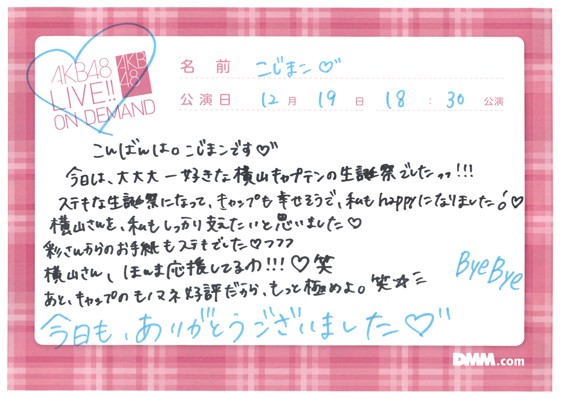 AKB48
LIVE!!
ON DEMAND
AKB
48
名前 こじまこ♡
公演日 12月 19日 18:30公演
こんばんは。こじまこです♡
今日は、大大大一好きな横山キャプテンの生誕祭でしたッッ!!!
ステキな生誕祭になって、キャップも幸せそうで、私もhappyになりました♡
横山さんを、私もしっかり支えたいと思いました♡
彩さんからのお手紙もステキでした♡フフフ
横山さん、ほんま応援してるわ!!!♡笑
あと、キャップのモノマネ好評だから、もっと極めよ。笑☆
ByeBye
今日も、ありがとうございました♡
DMM.com